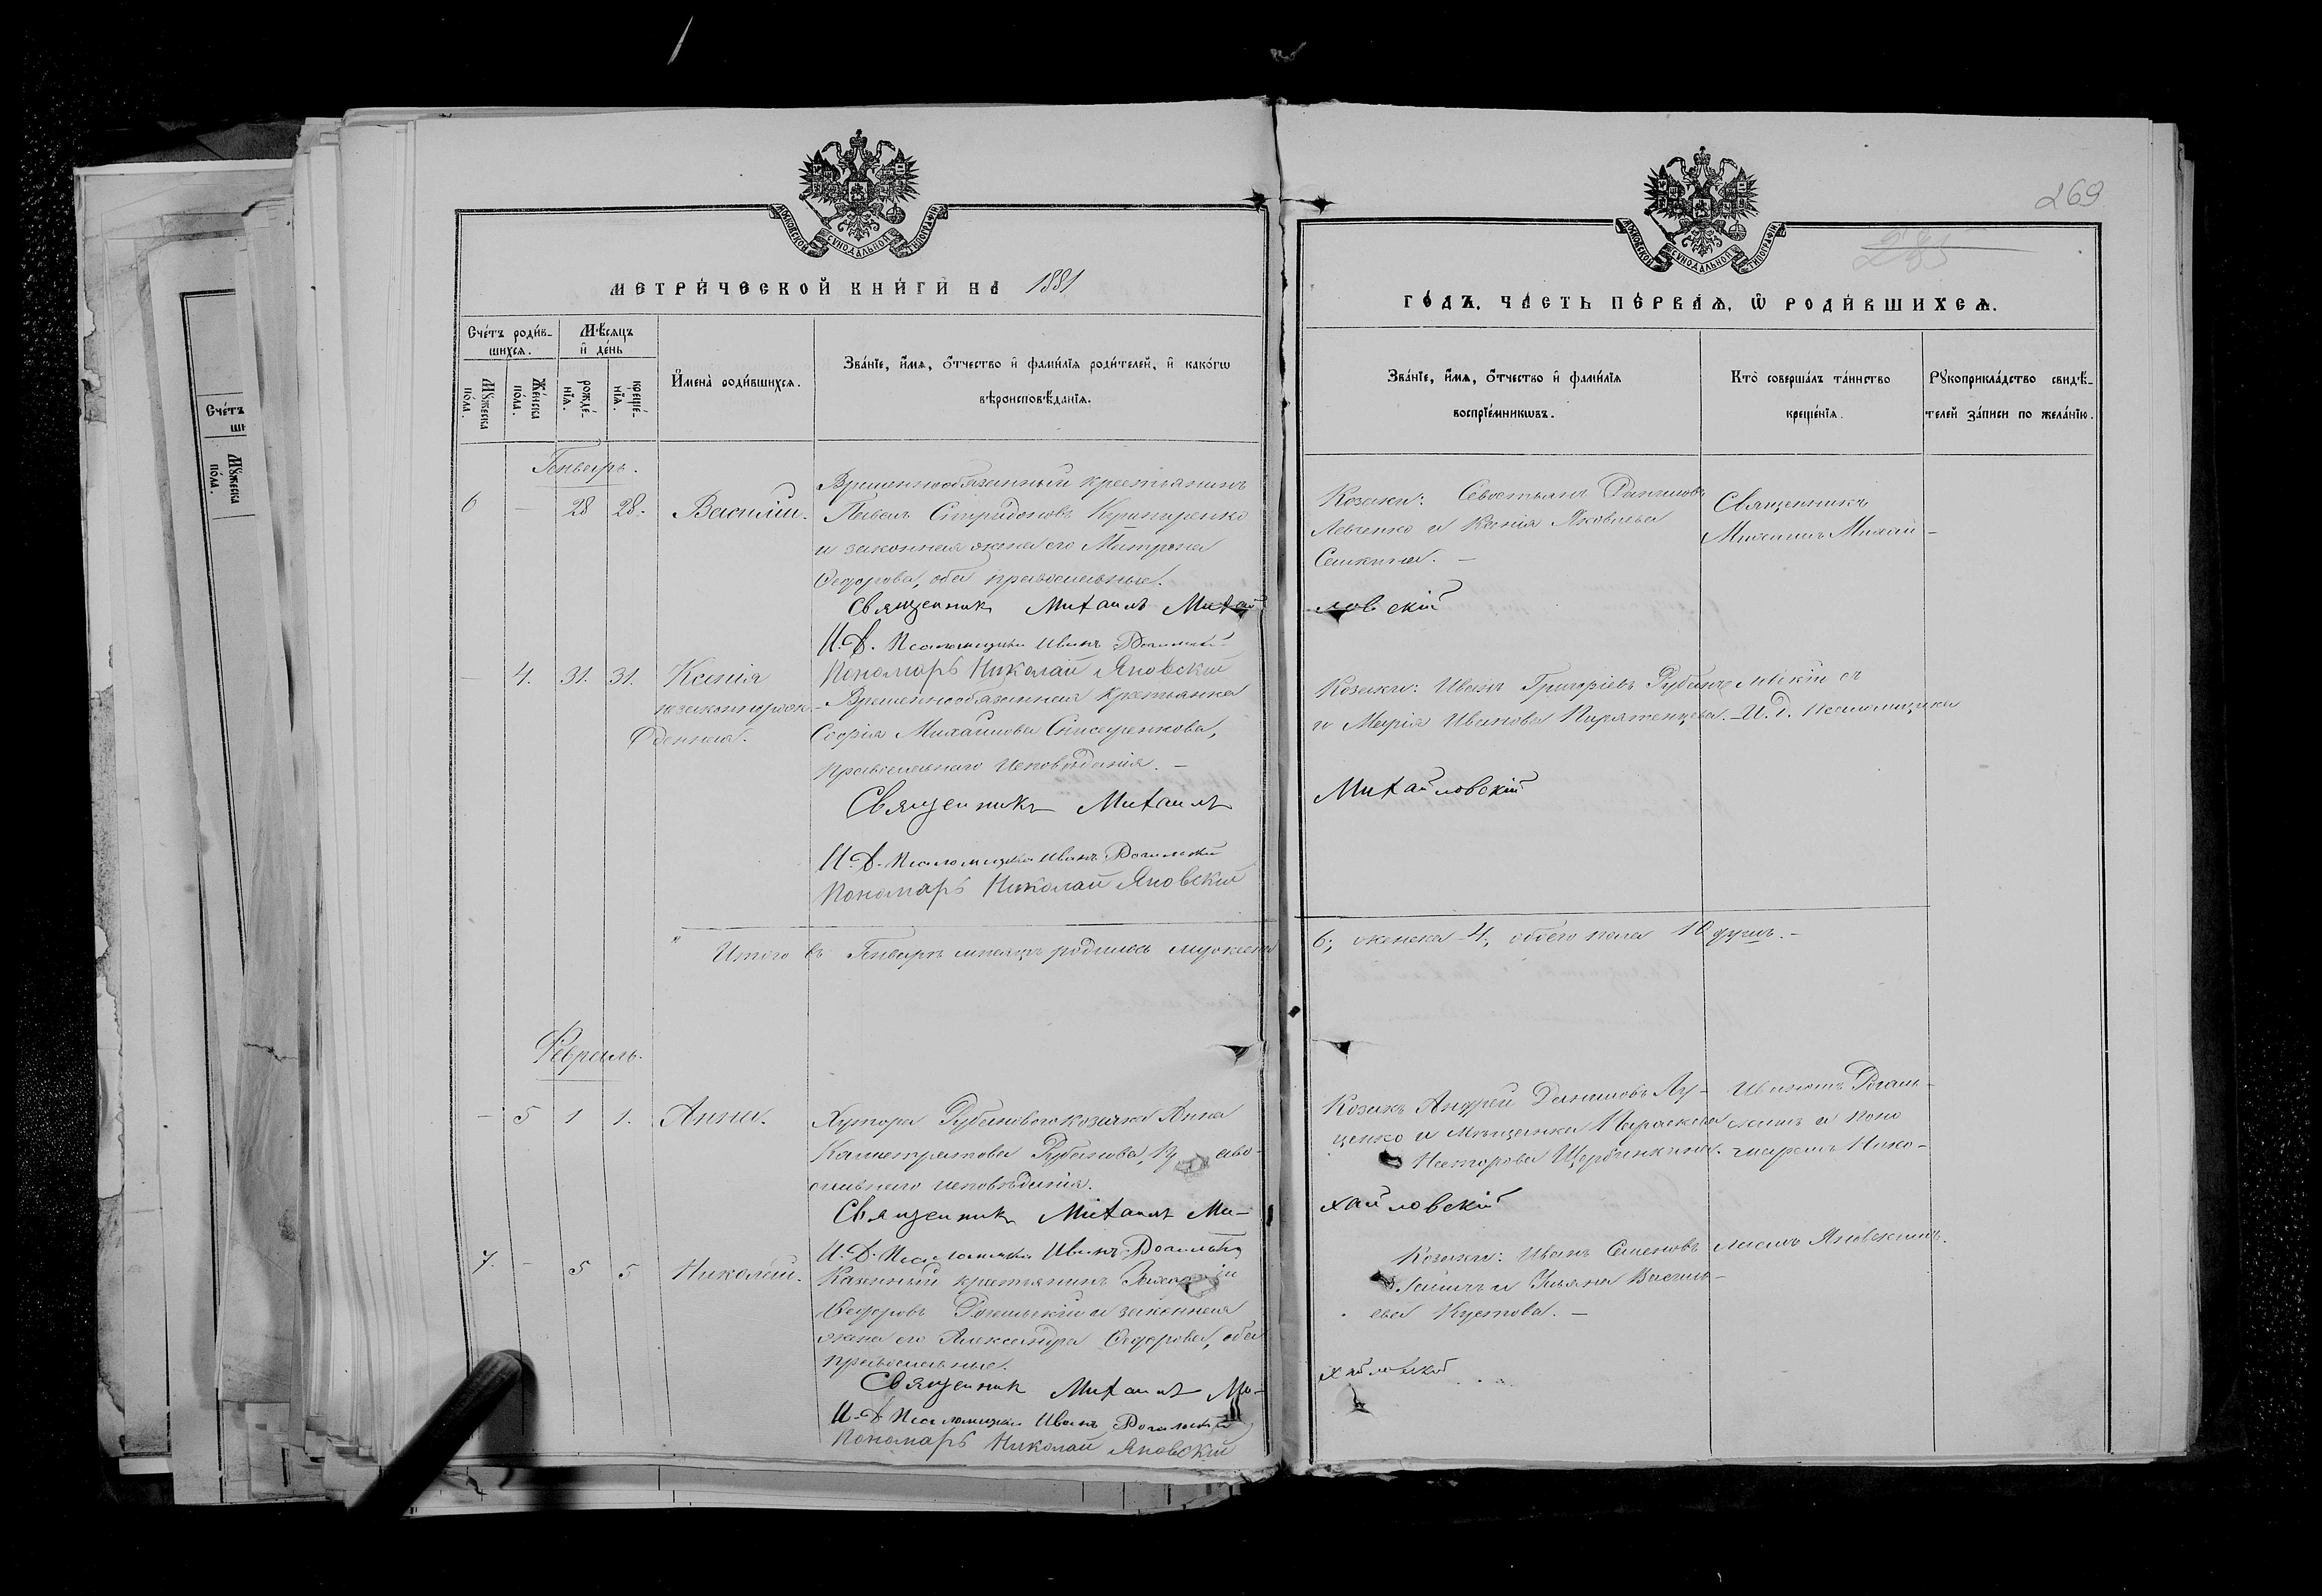 МОСКОВСКОЙ СѴНОДАЛЬНОЙ ТИПОГРАФІИ
МЕТРИ́ЧЕСКОЙ КНИ́ГИ НА 1881
Сче́тъ роди́в-
шихсѧ.
Мѣ́сѧцъ
и҆ де́нь
Мꙋ́жеска
по́ла.
Же́нска
по́ла.
рожде́-
нїѧ.
креще́-
нїѧ.
И҆мена̀ роди́вшихсѧ.
Зва́нїе, и҆́мѧ, ѻ҆́тчество и҆ фами́лїѧ роди́телей, и҆ како́гѡ
вѣроисповѣ́данїѧ.
Генварь.
6 - 28 28. Василій.
Временнообязанный крестьянинъ
Павелъ Спиридоновъ Кушнаренко
и законная жена его Матрона
Федорова, оба православные.
Священникъ Михаилъ Михай
И. Д. Псаломщика Иванъ Рогальскій
Пономарь Николай Яновскій
- 4. 31. 31. Ксенія
незаконнорож-
денная.
Временнообязанная крестьянка
Софія Михайлова Снисаренкова,
православнаго исповѣданія. -
Священникъ Михаилъ
И. Д. Псаломщика Иванъ Рогальскій
Пономарь Николай Яновскій
" Итого въ Генварѣ мѣсяцѣ родилось мужеска
Февраль.
- 5 1 1. Анна.
Хутора Рубанового козачка Анна
Калистратова Рубанова,
славнаго исповѣданія.
Священникъ Михаилъ Ми-
И. Д. Псаломщика Иванъ Рогальскій
7. - 5 5 Николай.
Казенный крестьянинъ
Федоровъ Рогальскій и законная
жена его Александра Федорова, оба
православные.
Священникъ Михаилъ Ми-
И. Д. Псаломщика Иванъ Рогальскій
Пономарь Николай Яновскій
269
285
МОСКОВСКОЙ СѴНОДАЛЬНОЙ ТИПОГРАФІИ
ГО́ДЪ. ЧА́СТЬ ПЕ́РВАѦ, Ѡ҆ РОДИ́ВШИХСѦ.
Зва́нїе, и҆́мѧ, ѻ҆́тчество и҆ фами́лїѧ
воспрїе́мникѡвъ.
Кто̀ соверша́лъ та́инство
креще́нїѧ.
Рꙋкоприкла́дство свидѣ́-
телей за́писи по жела́нїю.
Козаки: Севастьянъ Даниловъ
Левченко и Ксенія Яковлева
Сашкина. -
Священникъ
Михаилъ Михай-
ловскій
Козаки: Иванъ Григоріевъ Рубанъ
и Марія Иванова Пирятенцева. -
ловскій съ
И. д. псаломщика
Михайловскій
6; женска 4, обоего пола 10 душъ. -
Козакъ Андрей Даниловъ Лу-
ценко и мѣщанка Параскева
Несторова Щербинкина.
Иваномъ Рогаль-
скимъ и поно
маремъ Нико-
хайловскій
лаемъ Яновскимъ.
Козаки: Иванъ Семеновъ
и Ульяна Василь-
ева Кустова. -
хайловскій
Сче́тъ
ши
Мꙋ́жеска
по́ла.